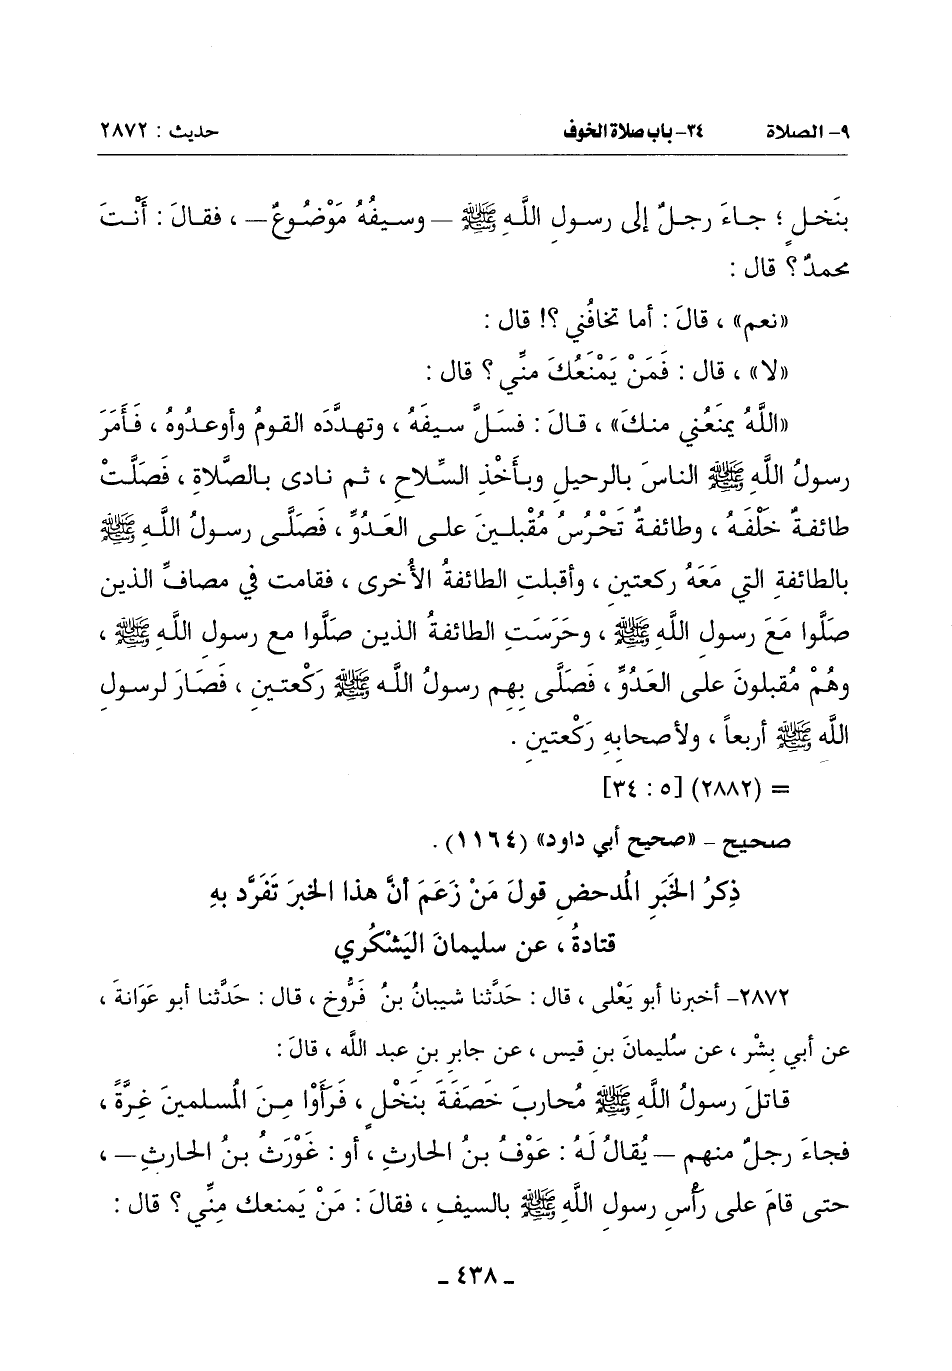 ٩- الصلاة ٣٤- باب صلاة الخوف حديث : ٢٨٧٢
بنَخلٍ ؛ جاءَ رجلٌ إلى رسولِ اللَّهِ ﷺ – وسيفُهُ مَوْضُوعٌ – ، فقالَ : أَنْتَ
محمدٌ ؟ قال :
«نعم» ، قالَ : أما تخافُني ؟! قال :
«لا» ، قال : فَمَنْ يَمْنَعُكَ منِّي ؟ قال :
«اللَّهُ يمنَعُني منكَ» ، قالَ : فسَلَّ سيفَهُ ، وتهدَّدَه القومُ وأوعدُوهُ ، فَأَمَرَ
رسولُ اللَّهِ ﷺ الناسَ بالرحيلِ وبأَخْذِ السِّلاحِ ، ثم نادى بالصَّلاةِ ، فَصَلَّتْ
طائفةٌ خَلْفَهُ ، وطائفةٌ تَحْرُسُ مُقْبلينَ على العَدُوِّ ، فَصَلَّى رسولُ اللَّهِ ﷺ
بالطائفةِ التي مَعَهُ ركعتينِ ، وأقبلتِ الطائفةُ الأُخرى ، فقامت في مصافِّ الذين
صَلَّوا مَعَ رسولِ اللَّهِ ﷺ ، وحَرَسَتِ الطائفةُ الذين صَلَّوا مع رسولِ اللَّهِ ﷺ ،
وهُمْ مُقبلونَ على العَدُوِّ ، فَصَلَّى بِهِم رسولُ اللَّه ﷺ رَكْعتينِ ، فَصَارَ لرسولِ
اللَّه ﷺ أربعاً ، ولأصحابِهِ رَكْعتينِ .
= (٢٨٨٢) [٥ : ٣٤]
صحيح – «صحيح أبي داود» (١١٦٤) .
ذِكرُ الخَبَرِ المُدحضِ قولَ مَنْ زَعَمَ أنَّ هذا الخبرَ تَفَرَّد بهِ
قتادةُ ، عن سليمانَ اليَشْكُري
٢٨٧٢- أخبرنا أبو يَعْلى ، قال : حَدَّثنا شيبانُ بنُ فَرُّوخ ، قال : حَدَّثنا أبو عَوَانةَ ،
عن أبي بِشْرٍ ، عن سُليمانَ بنِ قيس ، عن جابرِ بنِ عبد اللَّه ، قالَ :
قاتلَ رسولُ اللَّهِ ﷺ مُحاربَ خَصَفَةَ بنَخْلٍ ، فَرَأَوْا مِنَ المُسلمينَ غِرَّةً ،
فجاءَ رجلٌ منهم – يُقالُ لَهُ : عَوْفُ بنُ الحارثِ ، أو : غَوْرَثُ بنُ الحارثِ – ،
حتى قامَ على رَأْسِ رسولِ اللَّهِ ﷺ بالسيفِ ، فقالَ : مَنْ يَمنعك مِنِّي ؟ قال :
ـ ٤٣٨ ـ